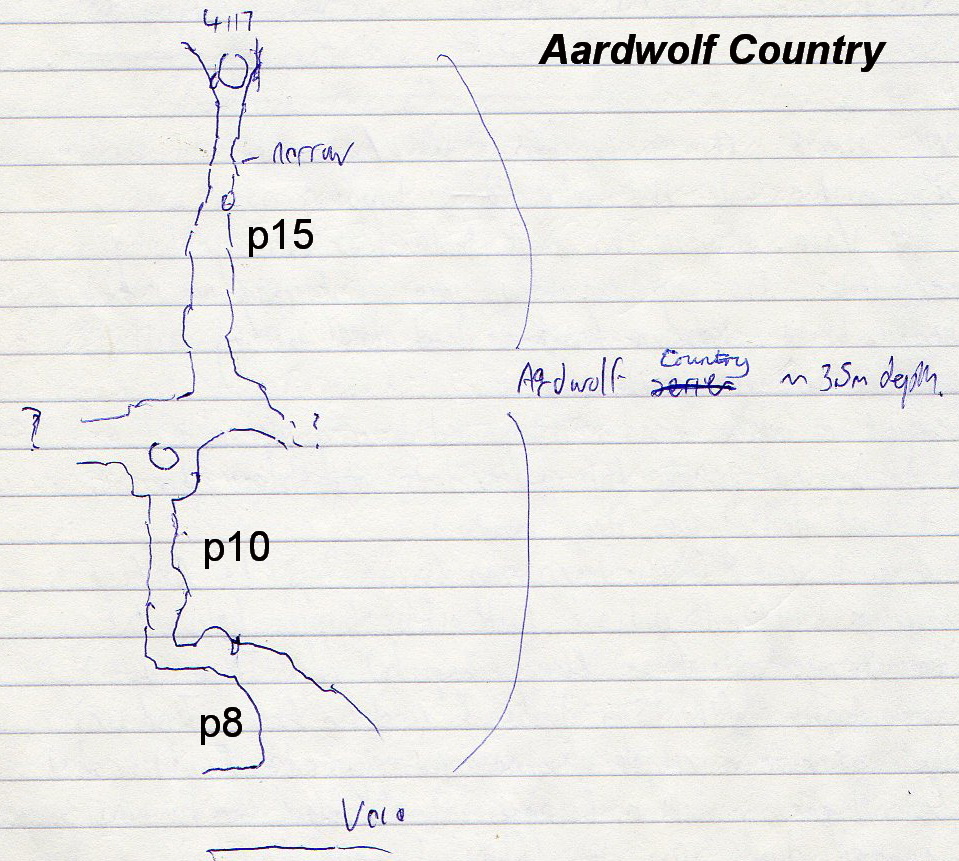 4117
Aardwolf Country
narrow
p15
Country
Aardwolf ~~series~~ ~ 35m depth.
? ?
p10
p8